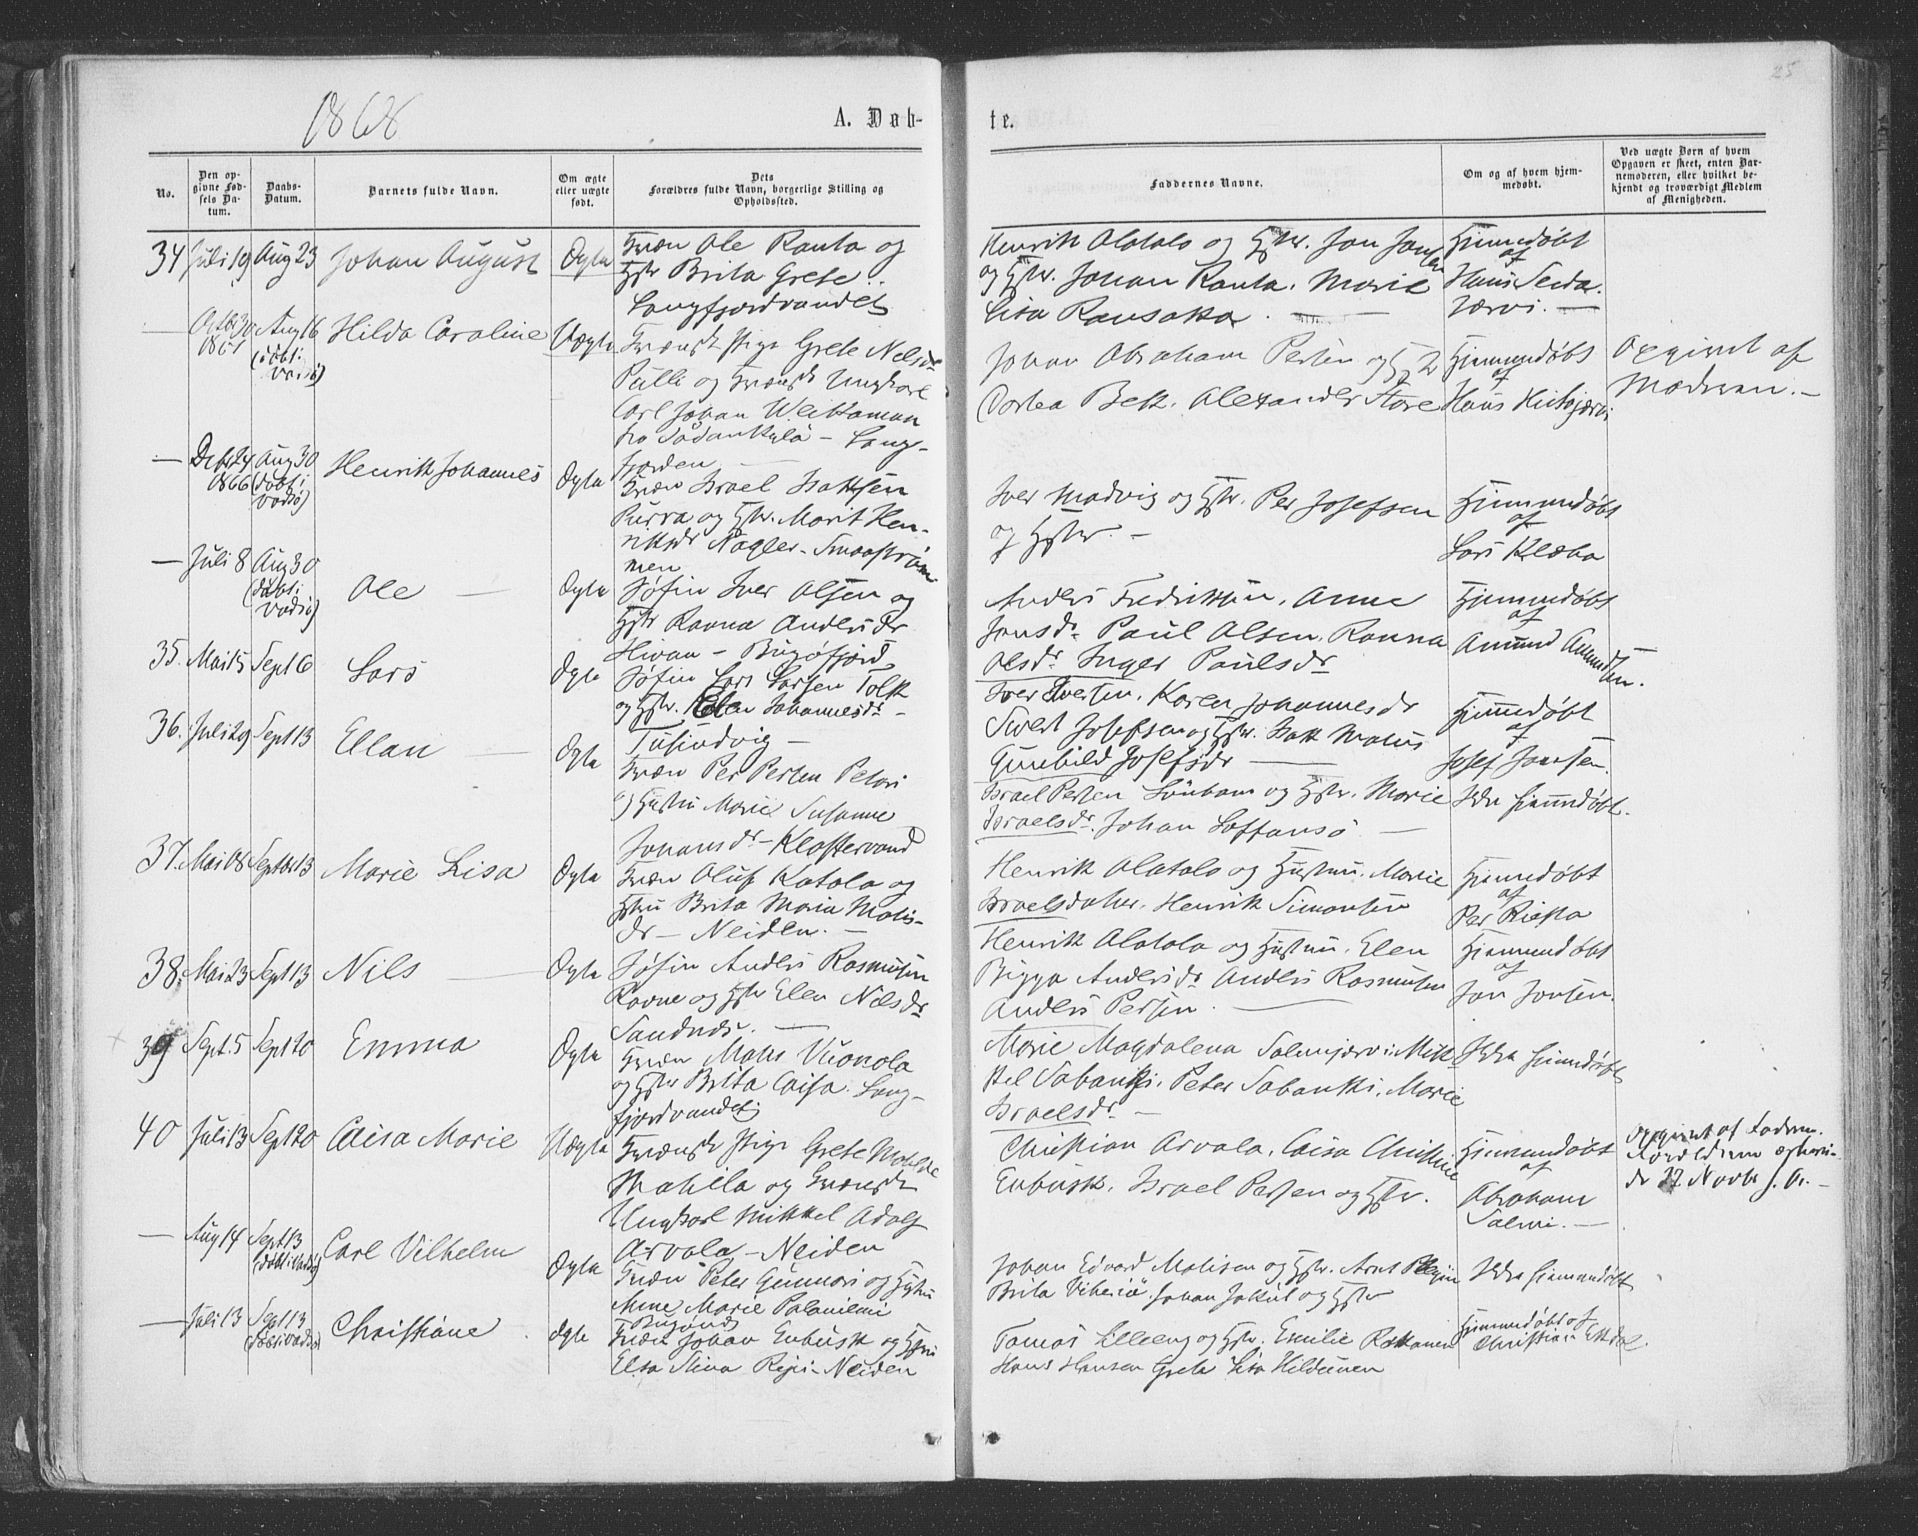 25
1868
A. Døb-
te.
No.
Den op-
givne Fød-
sels Da-
tum.
Daabs-
Datum.
Barnets fulde Navn.
Om ægte
eller uægte
født.
Dets
Forældres fulde Navn, borgerlige Stilling og
Opholdssted.
Faddernes Navne.
Om og af hvem hjem-
medøbt.
Ved uægte Børn af hvem
Opgaven er skeet, enten Bar-
nemoderen, eller hvilket be-
kjendt og troværdigt Medlem
af Menigheden.
34 Juli 19 Aug 23 Johan August Ægte
Kvæn Ole Ranta og
Hstr Brita Grete
Langfjordvandet
Henrik Alatalo og Hstr. Jon Jonsen
og Hstr. Johan Ranta. Marie
Lisa Ransaka. —
Hjemmedøbt
af
Hans Seida
Jærvi. —
— Octbr 30 1867 Aug 16 (døbt i Vadsø) Hilda Caroline Uægte
Kvænsk Pige Grete Nelsdr
Pulli og Kvænsk Ungkarl
Carl Johan Weikkaman
fra Sodankylä — Lang-
fjorden —
Johan Abraham Persen og
Dortea Bek. Alexander Store
Hjemmedøbt
af
Hans
Opgivet af
Moderen. —
— Debr 24 1866 Aug 30 (døbt i Vadsø) Henrik Johannes Ægte
Kvæn Israel Isaksen
Purra og Hstr. Marit Hen-
riksdr Nagler — Smaastrøm-
men
Iver Madvig og Hstr. Per Josefsen
og Hstr. —
Hjemmedøbt
af
Lars Klæbo
— Juli 8 Aug 30 (døbt i Vadsø) Ole — Ægte
Søfin Iver Olsen og
Hstr Ravna Andersdr
— Bugøfjord
Anders Fredriksen. Anne
Jonsdr. Paul Olsen. Ranna
Olsdr. Inger Paulsdr
Hjemmedøbt
af
Amund Amundsen.
35. Mai 15 Sept 6 Lars Ægte
Søfin Lars Larsen Tolk
og Hstr. Elen Johannesdr —
Tusindvig —
Iver Iversen. Karen Johannesdr
Sivert Josefsen og Hstr. Isak Matius
Gunhild Josefsdr —
Hjemmedøbt
af
Josef Jonsen.
36. Juli 29 Sept 13 Ellan — Ægte
Kvæn Per Persen Petari
og Hustru Marie Susanne
Johansdr — Klostervand
Israel Persen og Hstr. Marie
Israelsdr. Johan —
Ikke hjemmedøbt.
37. Mai 08 Septbr 13 Marie Lisa Ægte
Kvæn Oluf Katala og
Hstru Brita Maria Matis-
dr — Neiden. —
Henrik Alatalo og Hustru. Marie
Israelsdatter. Henrik Simonsen
Hjemmedøbt
af
Per
38. Mai 23 Sept 13 Nils — Ægte
Søfin Anders Rasmusen
Ravne og Hstr Elen Nilsdr
Sandnæs. —
Henrik Alatalo og Hustru. Elen
Bigga Andersdr Anders Rasmusen
Anders Persen. —
Hjemmedøbt
af
Jon Jonsen.
39 Sept. 5 Sept 20 Emma Ægte
Kvæn Mats Vuonola
og Hstr Brita Caisa. Lang-
fjordvandet
Marie Magdalena Salmijærvi. Mik-
kel Sabanski. Peter Sabanski. Marie
Israelsdr. —
Ikke hjemmedøbt
40 Juli 13 Sept 20 Caisa Marie Uægte
Kvænsk Pige Grete Matilde
og Kvænsk
Ungkarl Mikkel Adolf
Arvola — Neiden
Christian Arvola. Caisa Christine
Enbusk. Israel Persen og Hstr.
Hjemmedøbt
af
Abraham
Salmi. —
Opgivet af Faderen.
Forældrene ægtevi-
de 22 Novbr —
— Aug 14 Sept 13 (døbt i Vadsø) Carl Vilhelm Ægte
Kvæn Peter Gunnari og Hustru
Anne Marie Palaniemi
Bugønæs
Johan Edvard Matisen og Hstr.
Brita Johan Jakul og Hstr
Ikke hjemmedøbt
— Juli 13 Sept 13 (døbt i Vadsø) Christiane Ægte
Kvæn Johan Enbusk og Hstru
Elsa Stina — Neiden
Tomas Lilleeng og Hstr. Emilie
Hans Hansen Grete Lisa
Hjemmedøbt af
Christian Ekdal